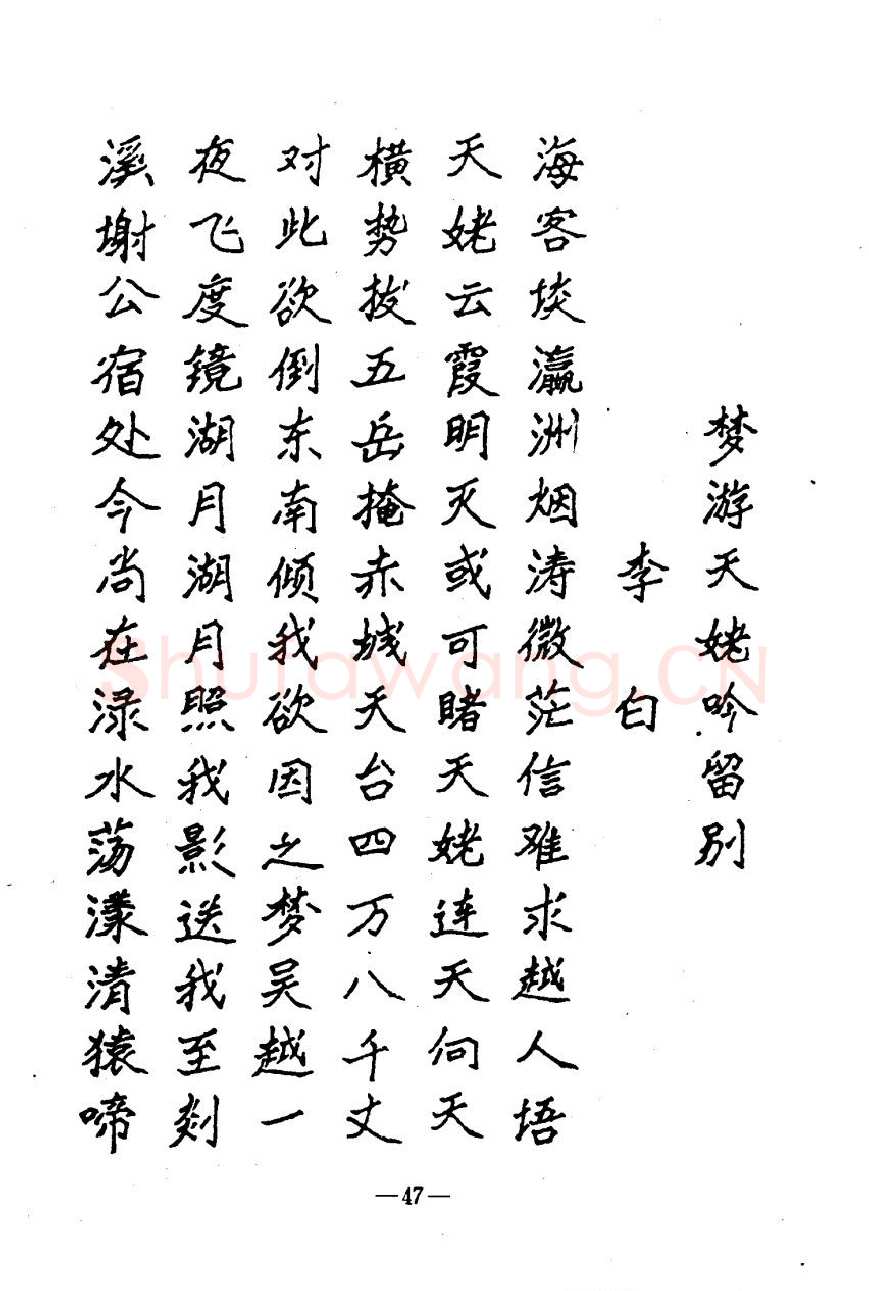 梦游天姥吟留别
李白
海客谈瀛洲烟涛微茫信难求越人语
天姥云霞明灭或可睹天姥连天向天
横势拔五岳掩赤城天台四万八千丈
对此欲倒东南倾我欲因之梦吴越一
夜飞度镜湖月湖月照我影送我至剡
溪谢公宿处今尚在渌水荡漾清猿啼
—47—
Shufawang.CN